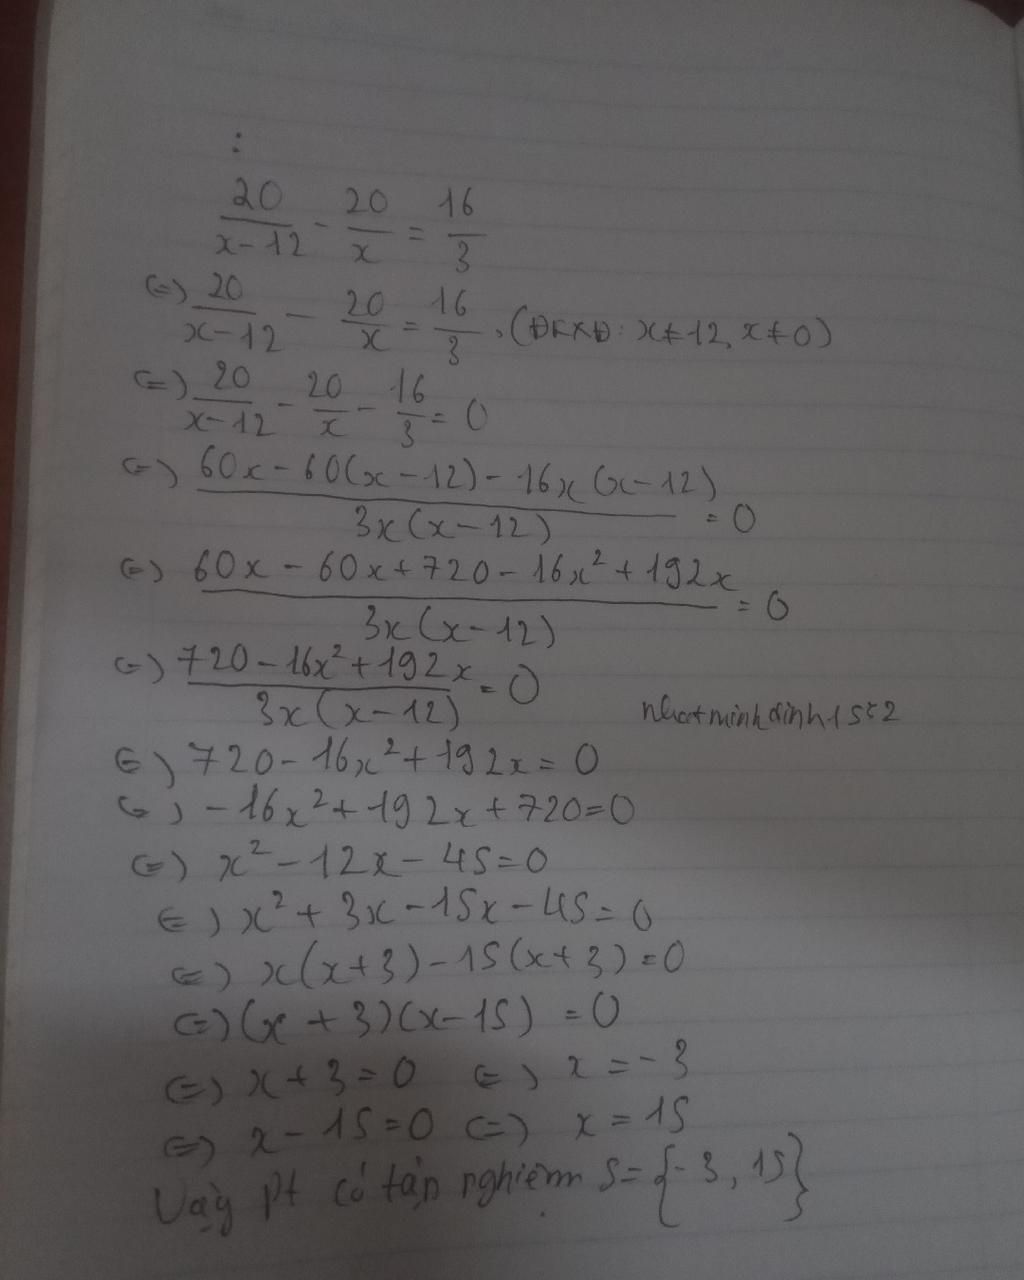 :
20/(x-12) - 20/x = 16/3
<=> 20/(x-12) - 20/x = 16/3. (ĐKXĐ: x≠12, x≠0)
<=> 20/(x-12) - 20/x - 16/3 = 0
<=> (60x - 60(x-12) - 16x(x-12))/(3x(x-12)) = 0
<=> (60x - 60x + 720 - 16x² + 192x)/(3x(x-12)) = 0
<=> (720 - 16x² + 192x)/(3x(x-12)) = 0
nhatminhdinh1522
<=> 720 - 16x² + 192x = 0
<=> -16x² + 192x + 720 = 0
<=> x² - 12x - 45 = 0
<=> x² + 3x - 15x - 45 = 0
<=> x(x+3) - 15(x+3) = 0
<=> (x+3)(x-15) = 0
<=> x+3=0 <=> x = -3
<=> x-15=0 <=> x = 15
Vậy pt có tập nghiệm S={-3, 15}